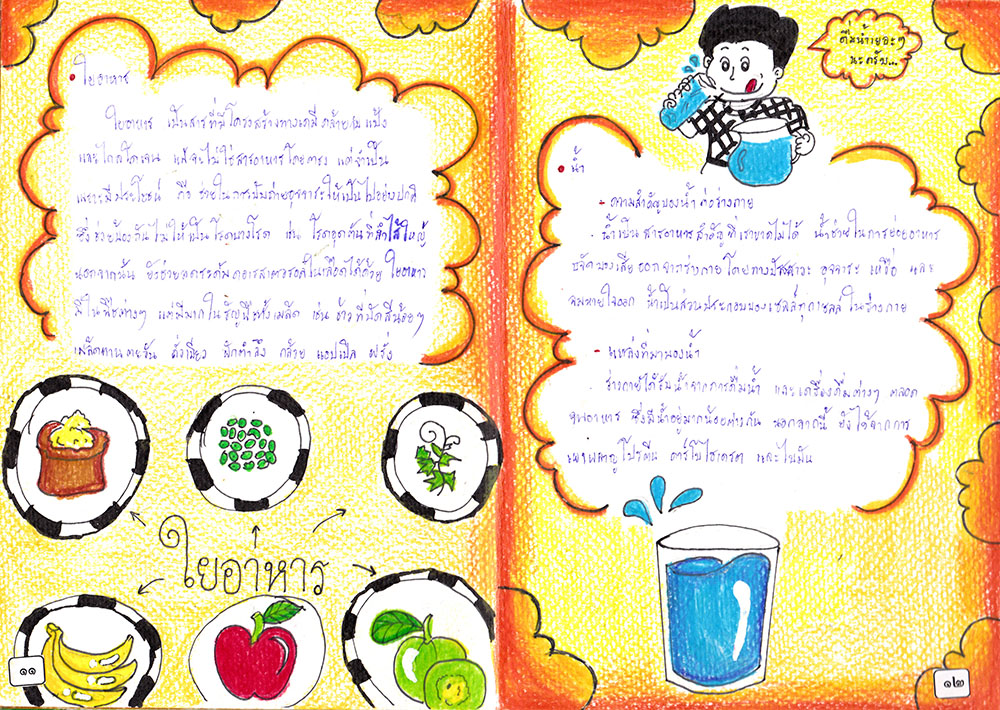 ใยอาหาร
ใยอาหาร เป็นสารที่มีโครงสร้างทางเคมี คล้ายกับ แป้ง
และไกลโคเจน แม้จะไม่ใช่สารอาหารโดยตรง แต่จำเป็น
เพราะมีประโยชน์ คือ ช่วยในการขับถ่ายอุจจาระให้เป็นไปอย่างปกติ
ซึ่งช่วยป้องกันไม่ให้เป็นโรคบางโรค เช่น โรคอุดตันที่ลำไส้ใหญ่
นอกจากนั้น ยังช่วยลดระดับคอเรสเตอรอลในเลือดได้ด้วย ใยอาหาร
มีในพืชต่างๆ แต่มีมากในธัญพืชทั้งเมล็ด เช่น ข้าวที่ขัดสีน้อยๆ
เมล็ดทานตะวัน ถั่วเขียว ผักตำลึง กล้วย แอปเปิล ฝรั่ง
ใยอาหาร
๑๑
ดื่มน้ำเยอะๆ
นะครับ...
น้ำ
- ความสำคัญของน้ำต่อร่างกาย
น้ำเป็นสารอาหารสำคัญที่เราขาดไม่ได้ น้ำช่วยในการย่อยอาหาร
ขจัดของเสียออกจากร่างกายโดยทางปัสสาวะ อุจจาระ เหงื่อ และ
ลมหายใจออก น้ำเป็นส่วนประกอบของเซลล์ทุกเซลล์ในร่างกาย
- แหล่งที่มาของน้ำ
ร่างกายได้รับน้ำจากการดื่มน้ำ และเครื่องดื่มต่างๆ ตลอด
จนอาหาร ซึ่งมีน้ำอยู่มากน้อยต่างกัน นอกจากนี้ ยังได้จากการ
เผาผลาญโปรตีน คาร์โบไฮเดรต และไขมัน
๑๒